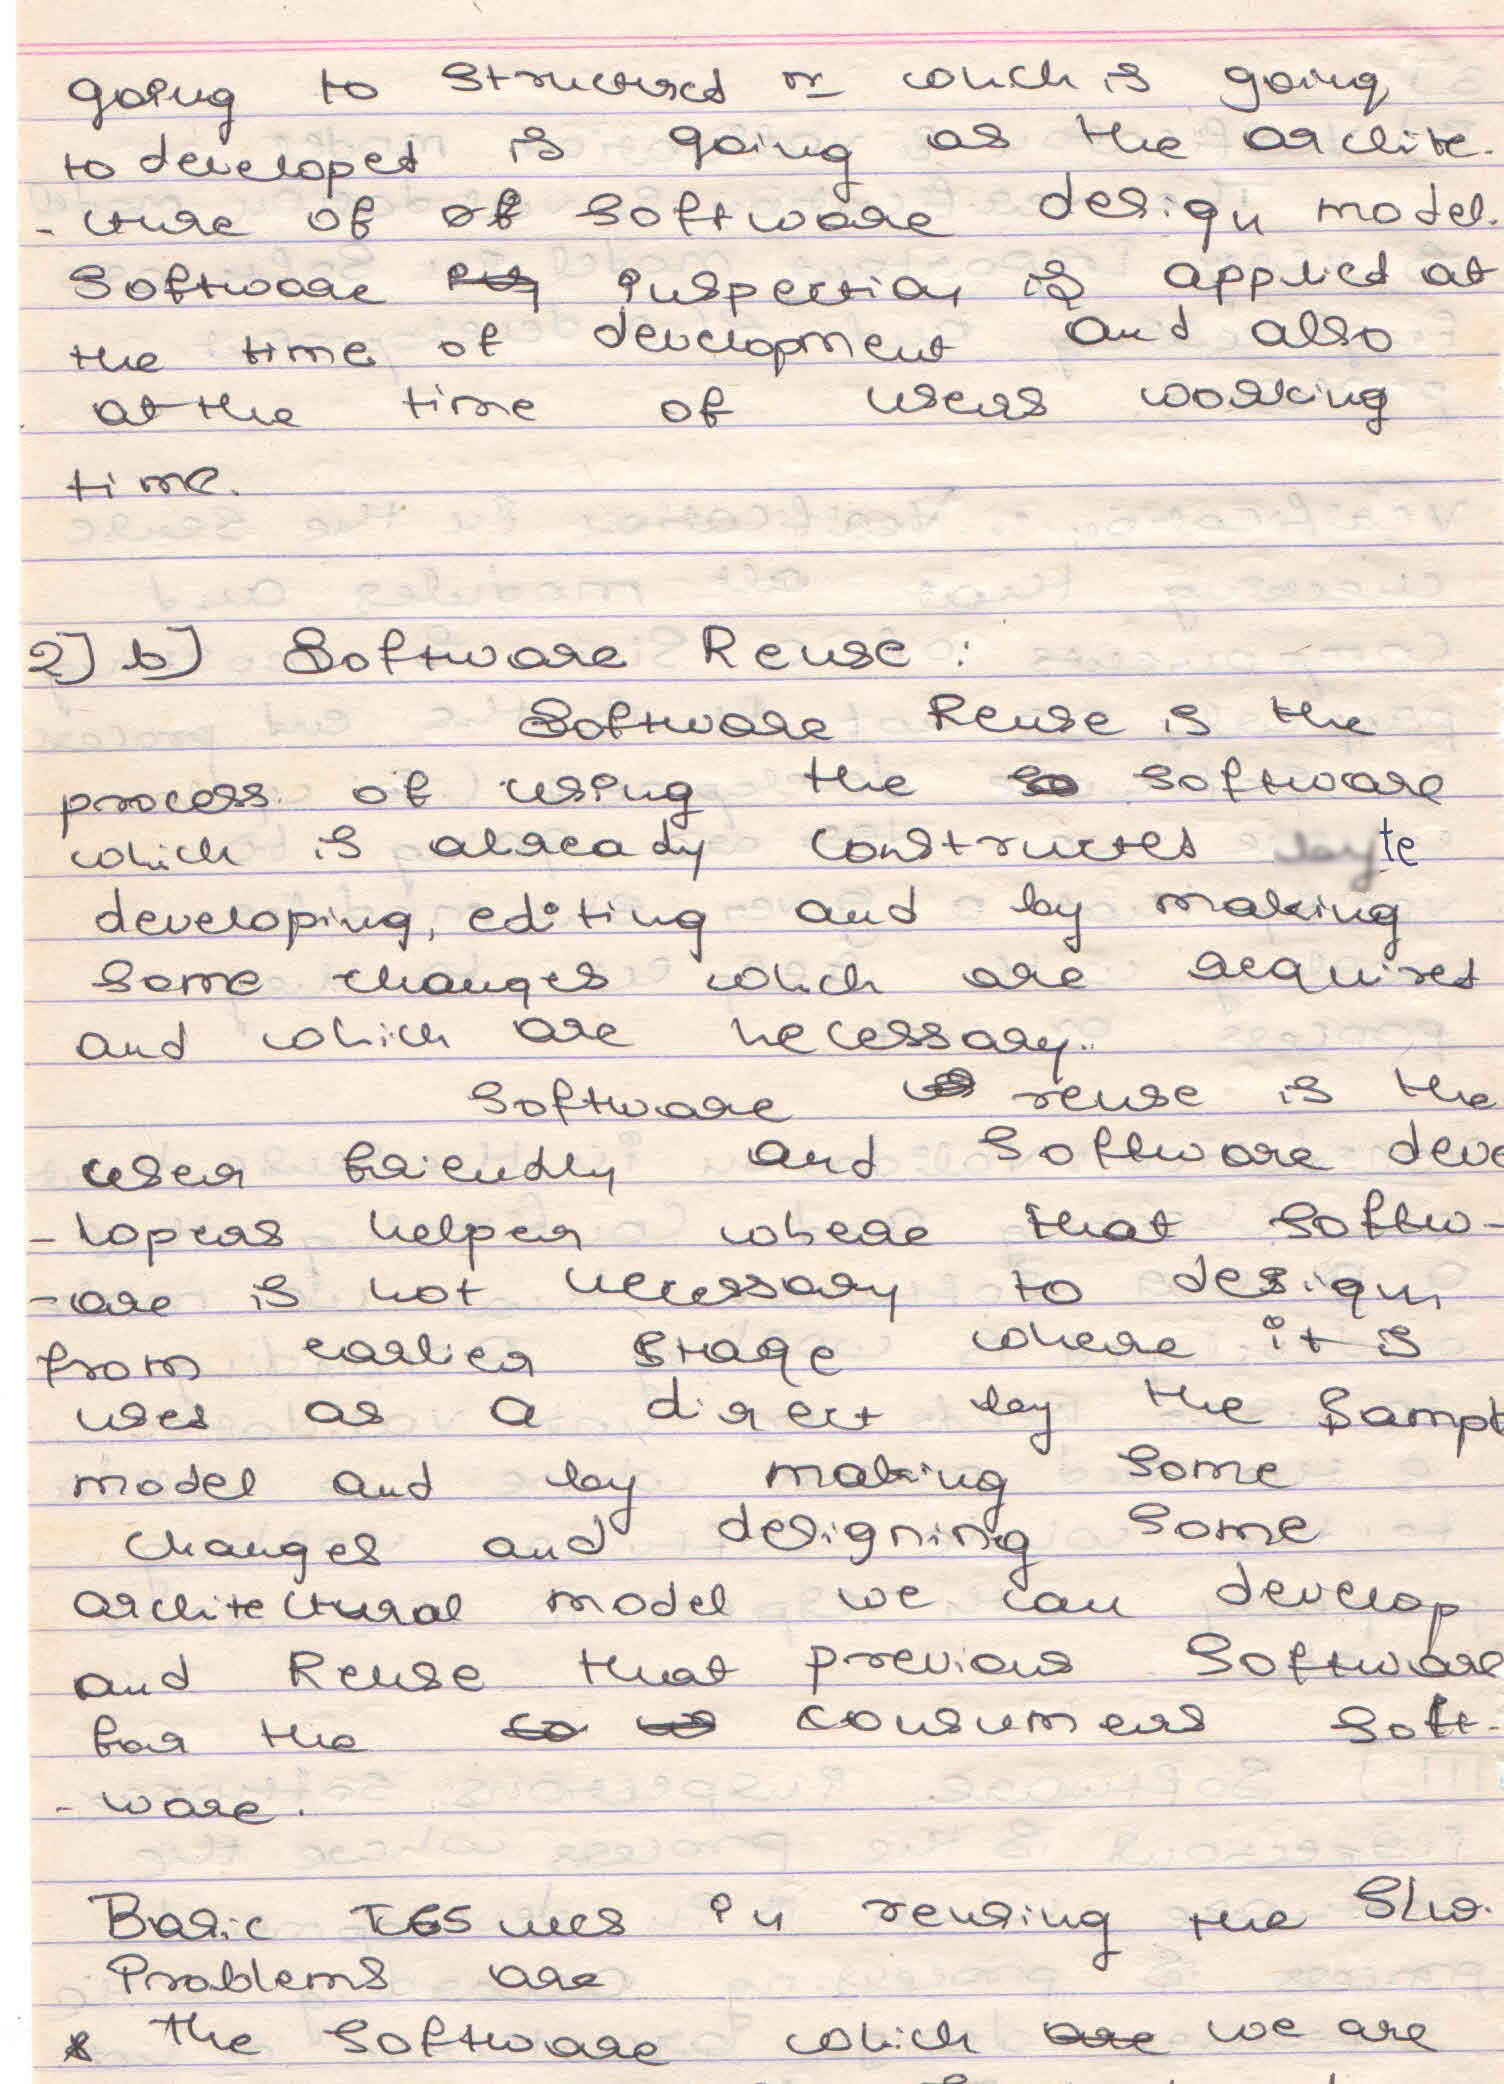 going to structured or which is going
to developed is going as the archite-
-cture of of software design model.
Software inspection is applied at
the time of development and also
at the time of users working
time.
2] b] Software Reuse :
Software Reuse is the
process of using the software
which is already constructed
developing, editing and by making
some changes which are required
and which are necessary.
Software reuse is the
user friendly and Software deve
-lopers helper where that softw-
-are is not necessary to design
from earlier stage where it is
used as a direct by the sampl
model and by making some
changes and designing some
architectural model we can develop
and Reuse that previous Software
for the consumers soft-
-ware.
Basic Issues in reusing the S/w.
Problems are
* the software which we are